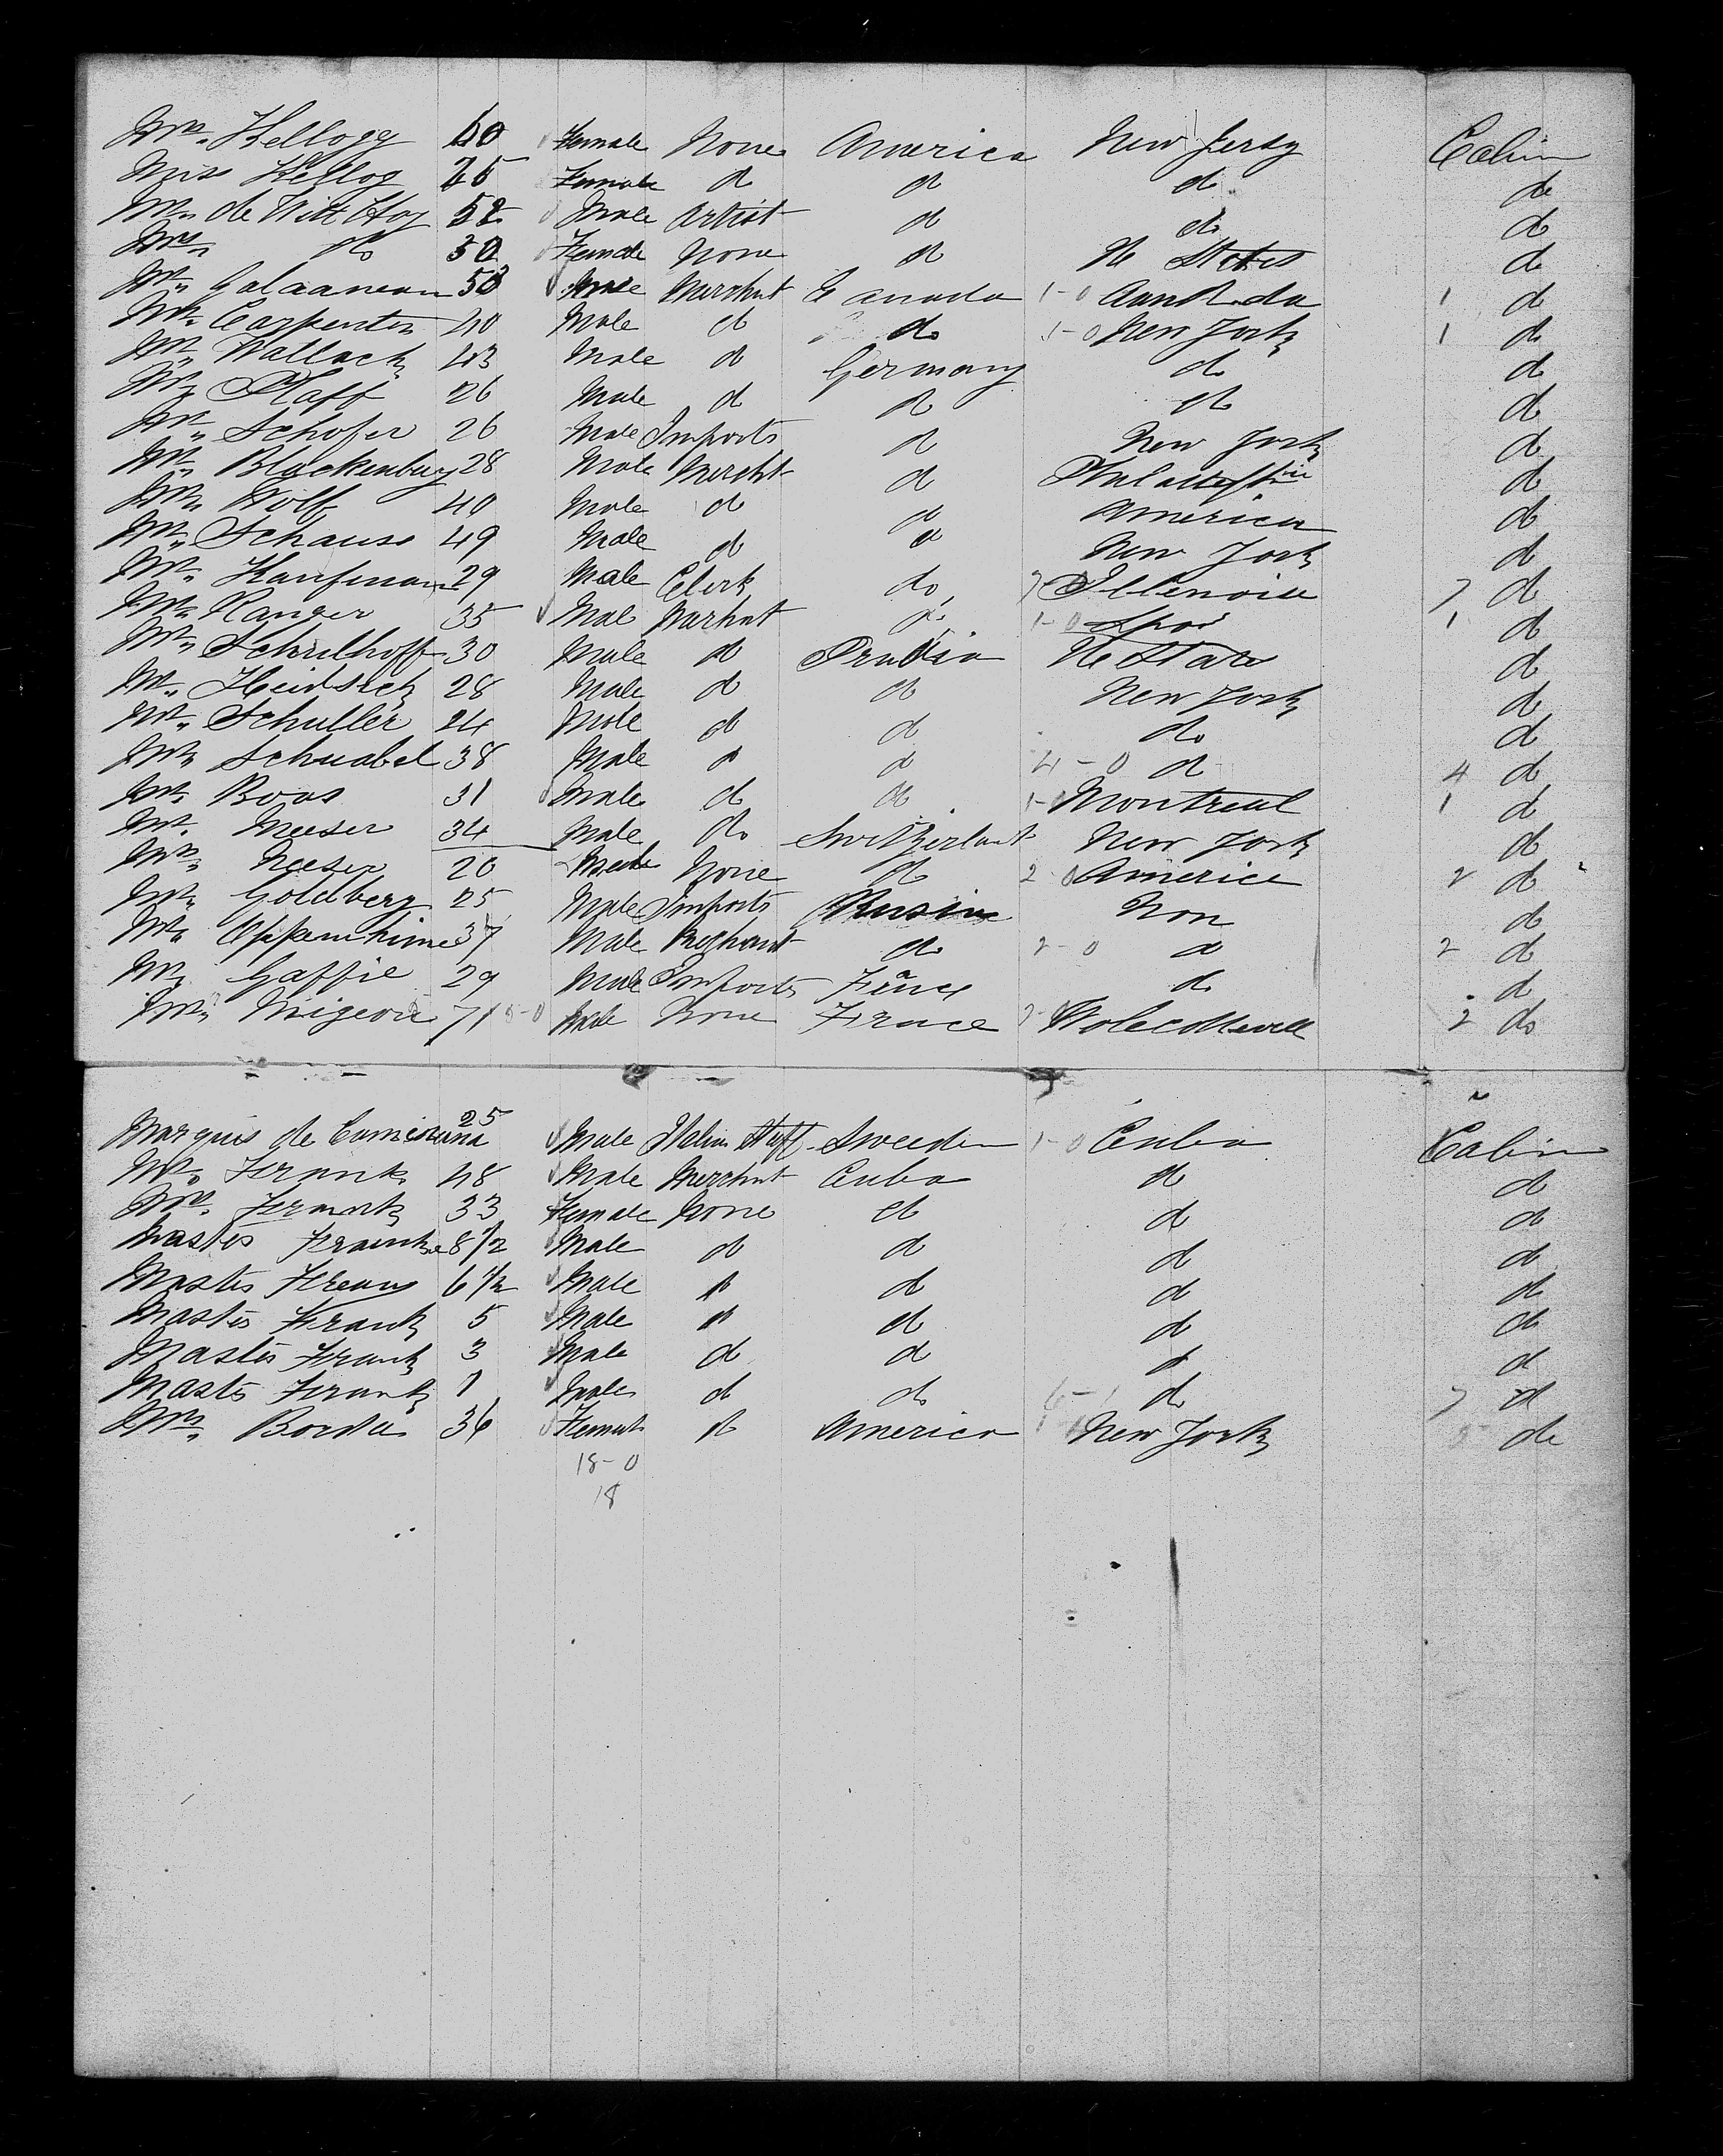 Mrs. Kellogg 60 Female None America New Jersy Cabin
Miss Kellog 25 Female d d d de
Mr. de Witt Hog 52 Male Artist d do d
Mrs. do 30 Female None d U States d
Mr. Galaaneau 50 Male Merchnt Canada 1-0 1 d
Mr. Carpenter 40 Male d do 1-0 New York 1 do
Mr. Wallack 43 Male d Germany do d
Mr. Plaff 26 Male d d d d
Mr. Schofer 26 Male Imports d New York d
Mr. Blackenburg 28 Male Mercht d d
Mr. Wolf 40 Male d d America d
Mr. Schauss 49 Male d d New York d
Mr. Kaufman 29 Male Clerk do 7 Illenoise 7 d
Mr. Ranger 35 Mal Marhnt do 1-0 1 d
Mr. Schulhoff 30 Male d Prussia U States d
Mr. Heidsick 28 Male d d New York d
Mr. Schuller 24 Male d d do d
Mr. Schuabel 38 Male d d 4-0 d 4 d
Mr. Boas 31 Male d d 1- Montreal 1 d
Mr. Meeser 34 Male do Switzerlant New York d
Mrs. Neeser 20 None d 2-0 America 2 d
Mr. Goldberg 25 Male Imports Rusia Non d
Mr. Oppenhime 37 Male Merchant do 2-0 d 2 d
Mr. Gaffie 29 Male Imports France do d
Mr. Migeon 71 Male None France 2 2 do
25
Marquis de Male Italian Staff Sweeden 1-0 Cuba Cabin
Mr. Frank 48 Male Merchnt Cuba d d
Mrs. Frank 33 Female None d d d
Master Frank 8 1/2 Male d d d d
Master 6 1/2 Male d d d d
Master Frank 5 Male d d d d
Master Frank 3 Male d d d d
Master Frank 1 Male d do 6-1 do 7 d
Mrs. Bordu 36 Female d America New York de
18-0
18